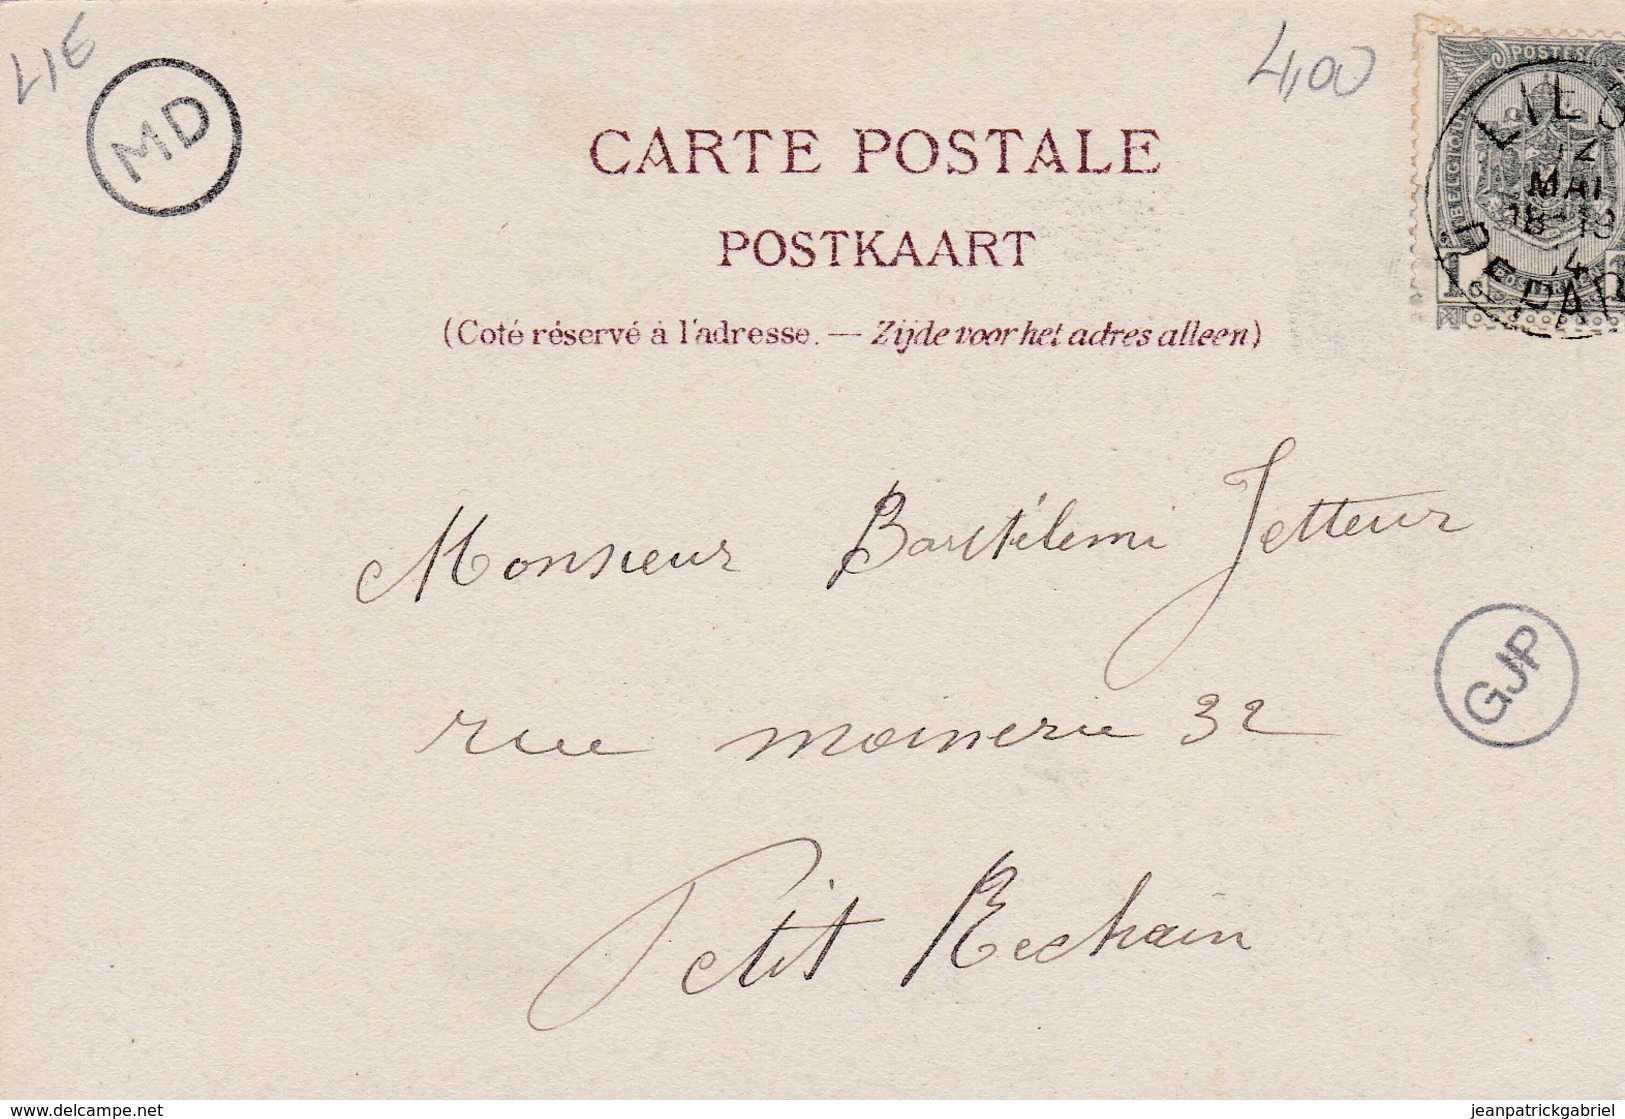 LIE
MD
4,00
CARTE POSTALE
POSTKAART
(Coté réservé à l'adresse. — Zijde voor het adres alleen)
POSTES
BELGIQUE
1
LIEG
MAI
18-19
DEPAR
Monsieur Barthélemi Jetteur
rue moinerie 32
Petit Rechain
GJP
www.delcampe.net
jeanpatrickgabriel